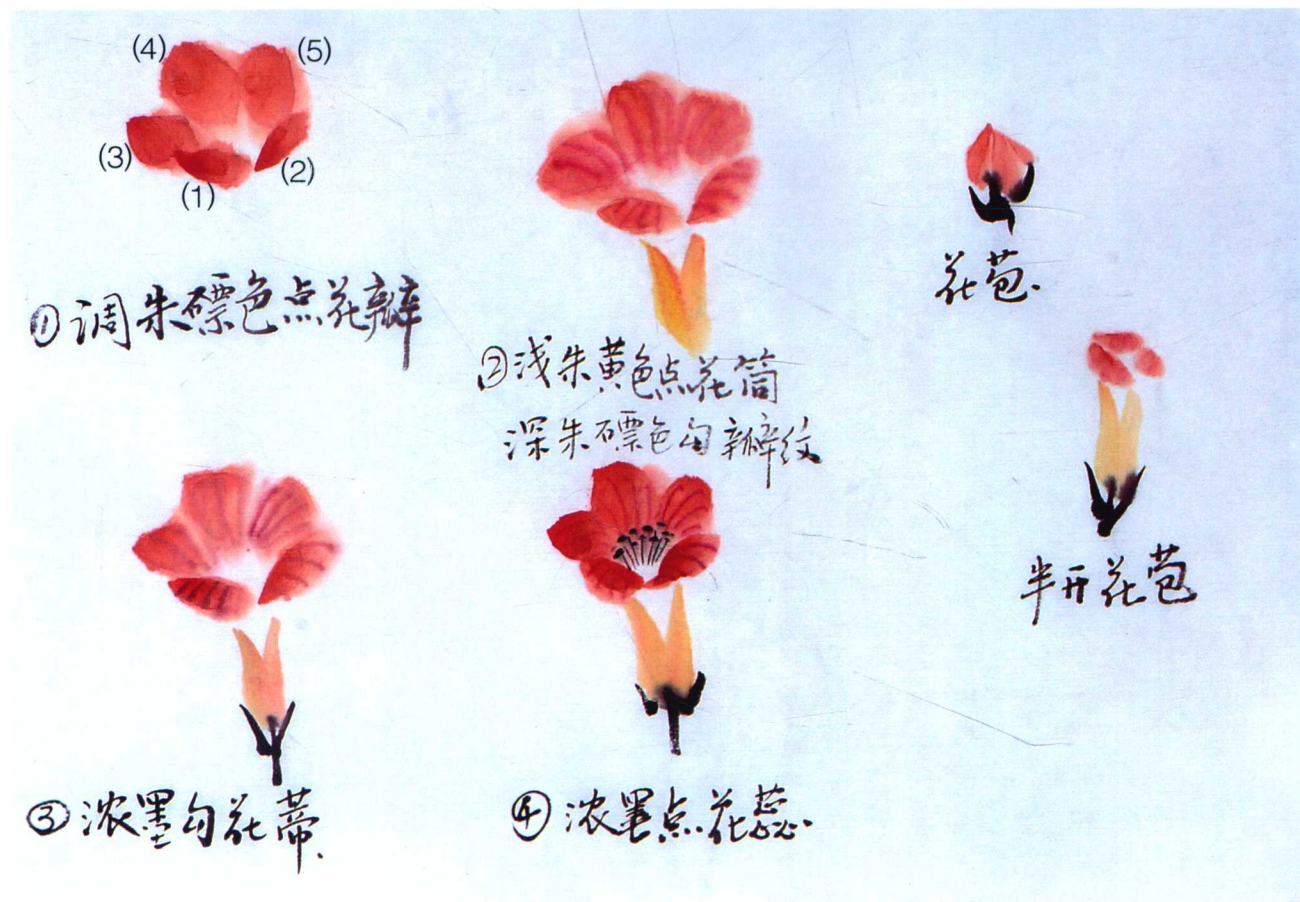 (4)
(5)
(3)
(2)
(1)
①调朱磦色点花瓣
②浅朱黄色点花筒
深朱磦色勾瓣纹
花苞.
半开花苞
③浓墨勾花蒂.
④浓墨点花蕊.